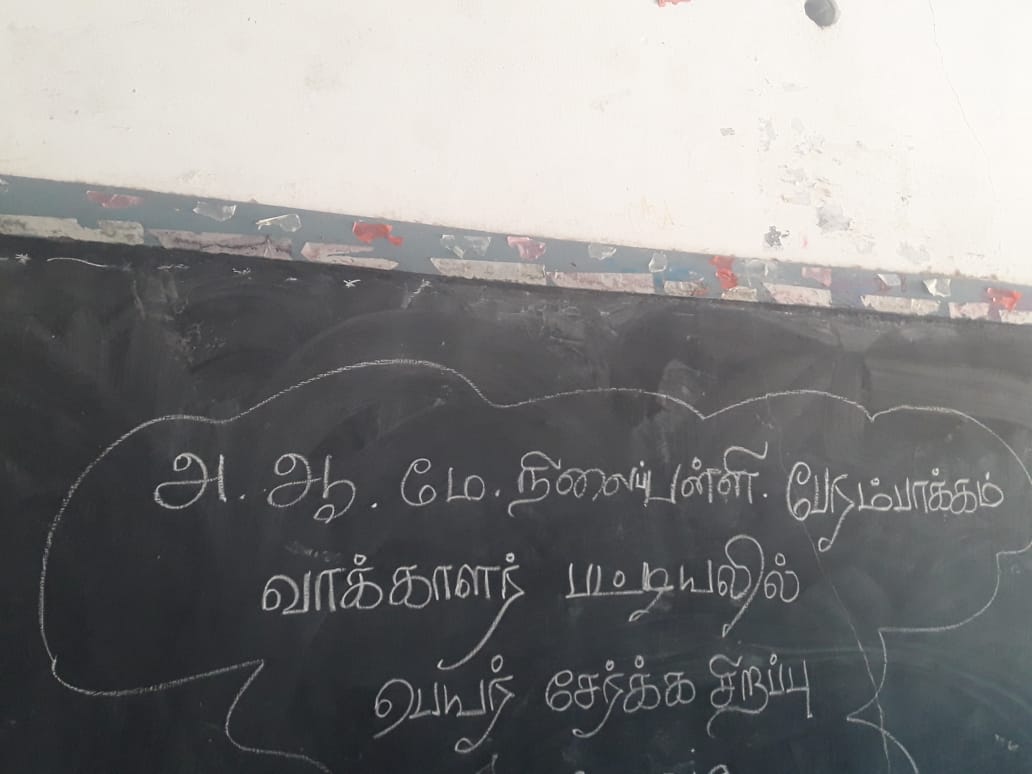 அ. ஆ. மே. நிலைப்பள்ளி. பேரும்பாக்கம்
வாக்காளர் பட்டியலில்
பெயர் சேர்க்க சிறப்பு